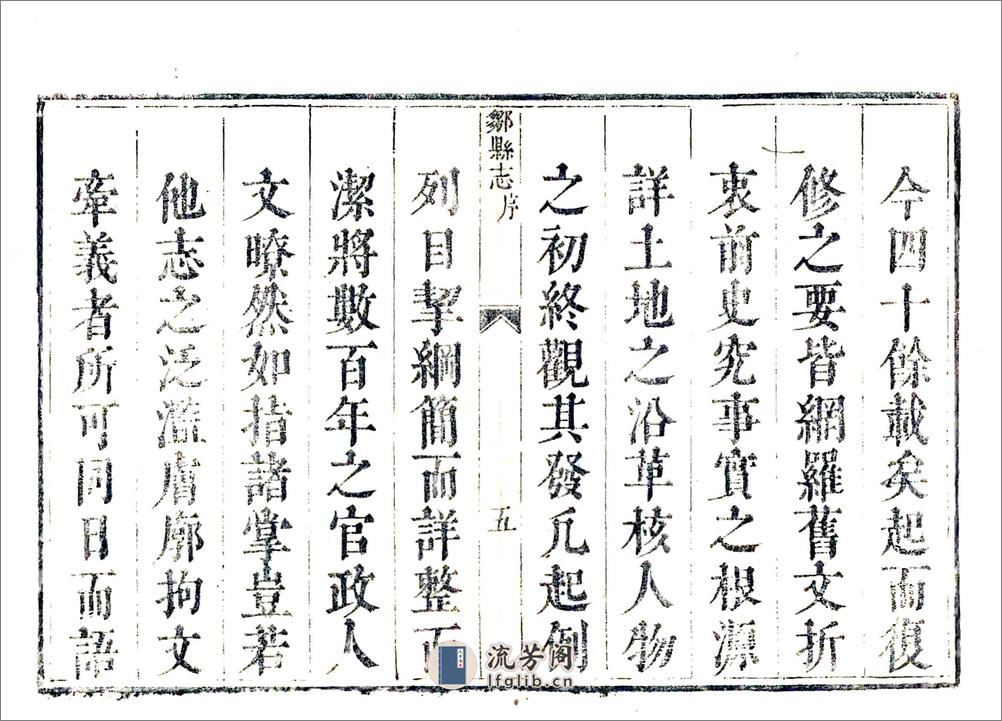 今四十餘載矣起而復
修之要皆網羅舊文折
衷前史究事實之根源
詳土地之沿革核人物
之初終觀其發凡起例
鄒縣志 序 五
列目挈綱簡而詳整而
潔將數百年之官政人
文暸然如指諸掌豈若
他志之泛濫膚廓拘文
牽義者所可同日而語
流芳阁
lfglib.cn